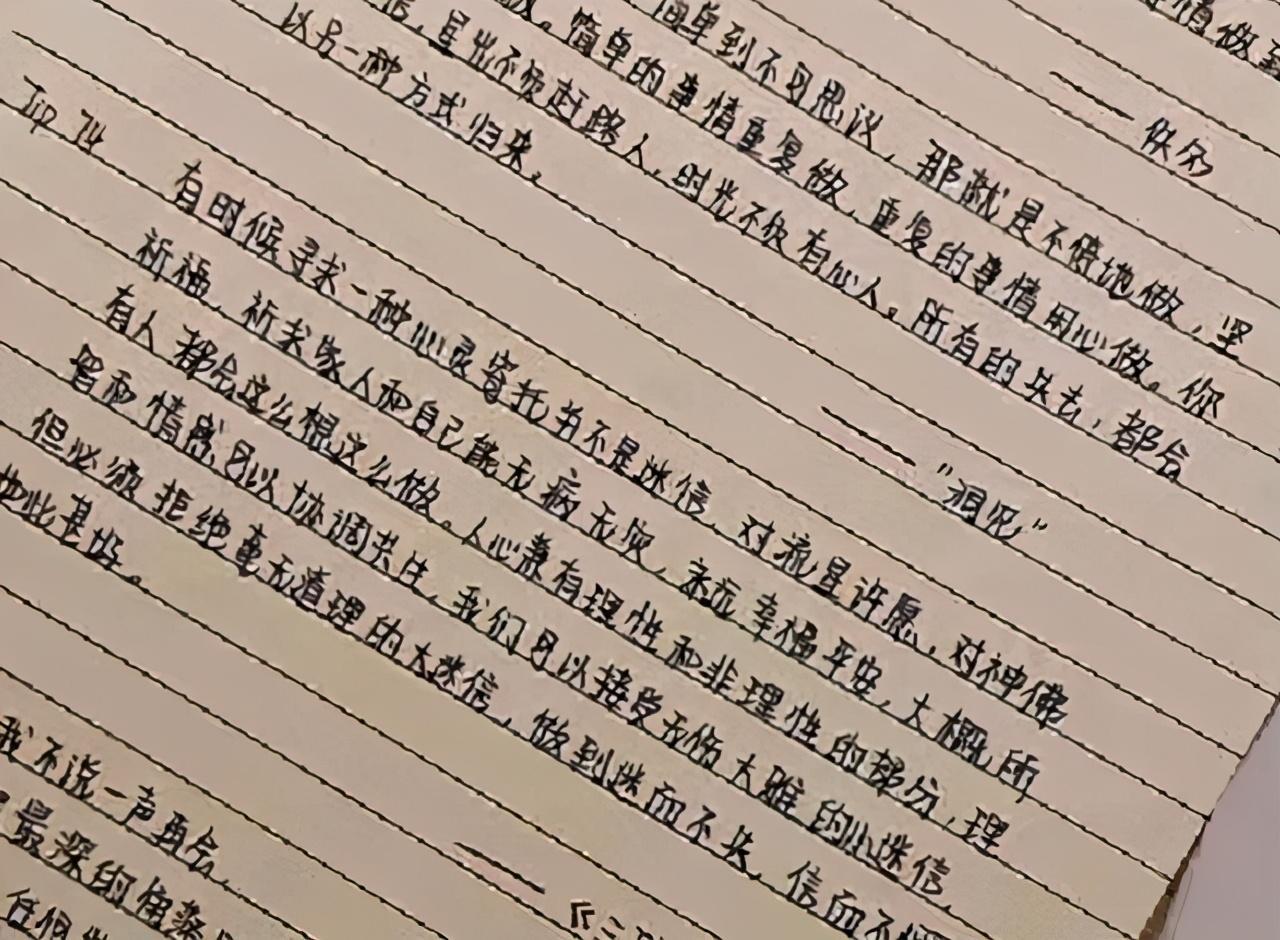 情做到
——佚名
简单到不可思议，那就是不停地做，坚
做。简单的事情重复做，重复的事情用心做。你
信，星光不负赶路人，时光不负有心人。所有的失去，都会
以另一种方式归来。
——"洄児"
Tip 74
有时候寻求一种心灵寄托并不是迷信，对流星许愿，对神佛
祈福，祈求家人和自己能无病无灾，永远幸福平安，大概所
有人都会这么想这么做。人心兼有理性和非理性的部分，理
智和情感可以协调共生，我们可以接受无伤大雅的小迷信，
但必须拒绝毫无道理的大迷信，做到迷而不失，信而不
如此甚好。
——《三
我不说一声再会，
最深的角落